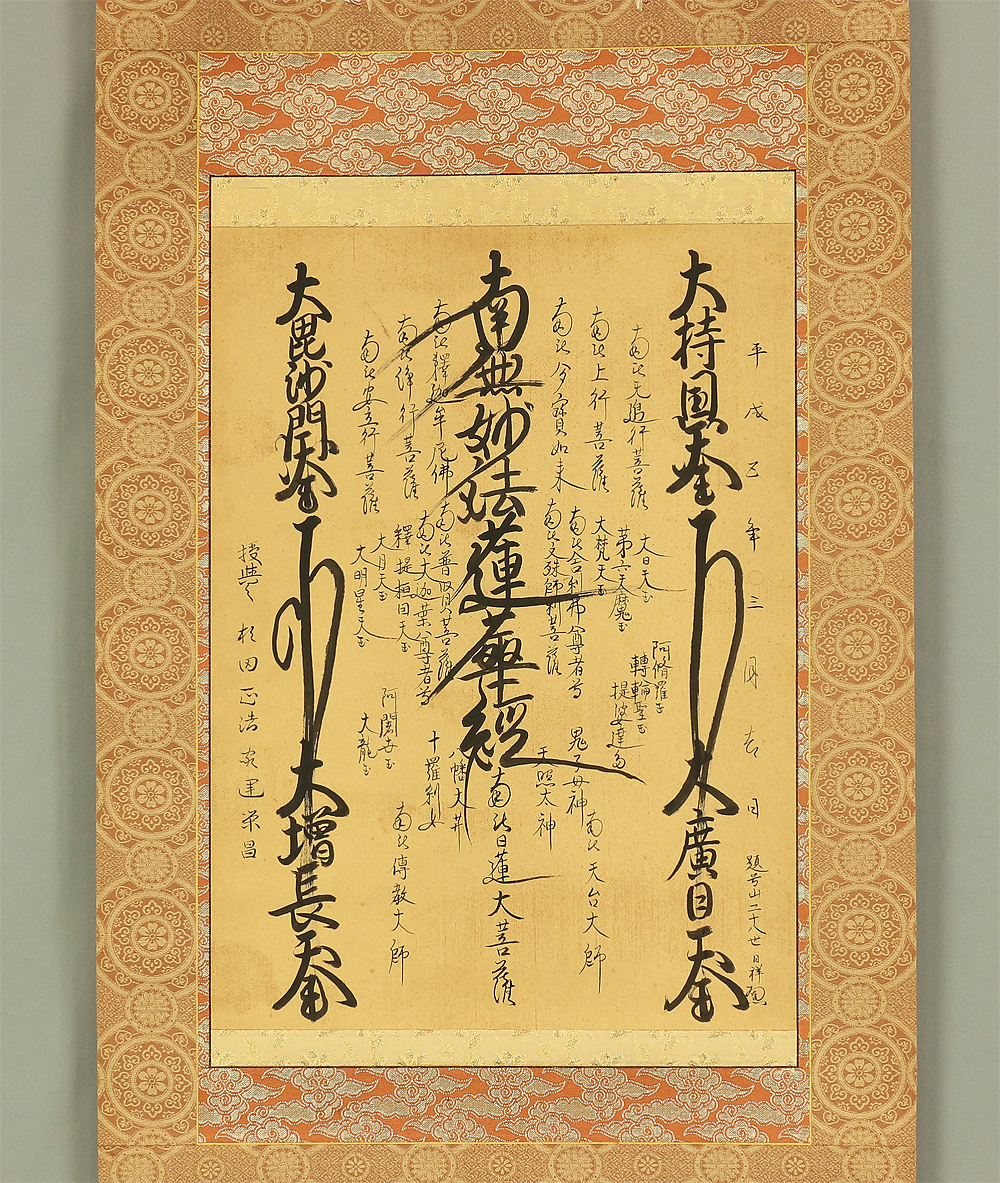 大持國天王
大廣目天王
南無無邊行菩薩
南無上行菩薩
南無多寳如来
大日天王
第六天魔王
大梵天王
南無舎利弗尊者等
南無文殊師利菩薩
阿脩羅王
轉輪聖王
提婆達多
鬼子母神
天照太神
南無天台大師
南無妙法蓮華經
南無日蓮大菩薩
南無釋迦牟尼佛
南無浄行菩薩
南無安立行菩薩
南無普賢菩薩
南無大迦葉尊者等
釋提桓因天王
大月天王
大明星天王
八幡大菩薩
十羅刹女
阿闍世王
大龍王
南無傳教大師
大毘沙門天王
大増長天王
授與之